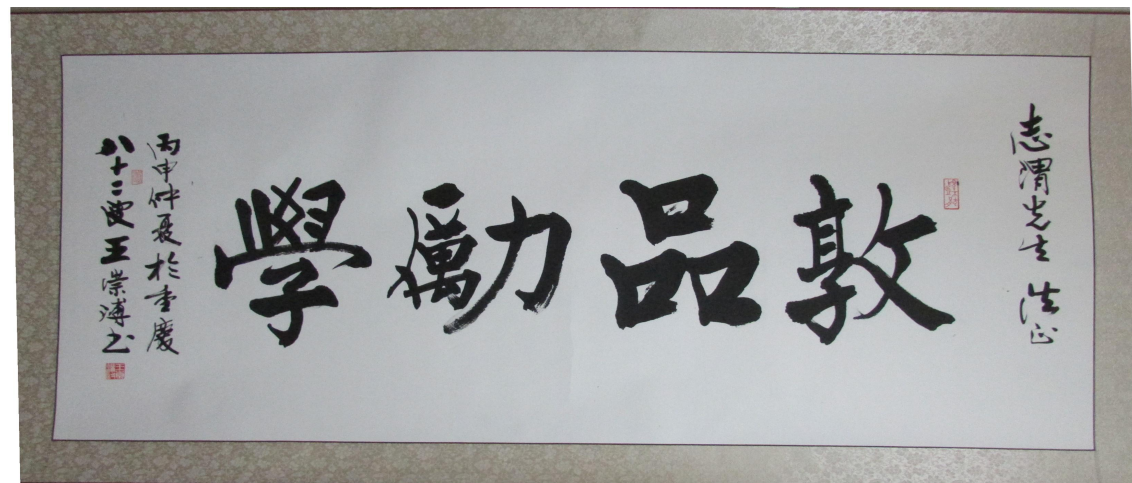 志渭先生 法正
敦品勵學
丙申仲夏於重慶
八十二叟王崇溥书